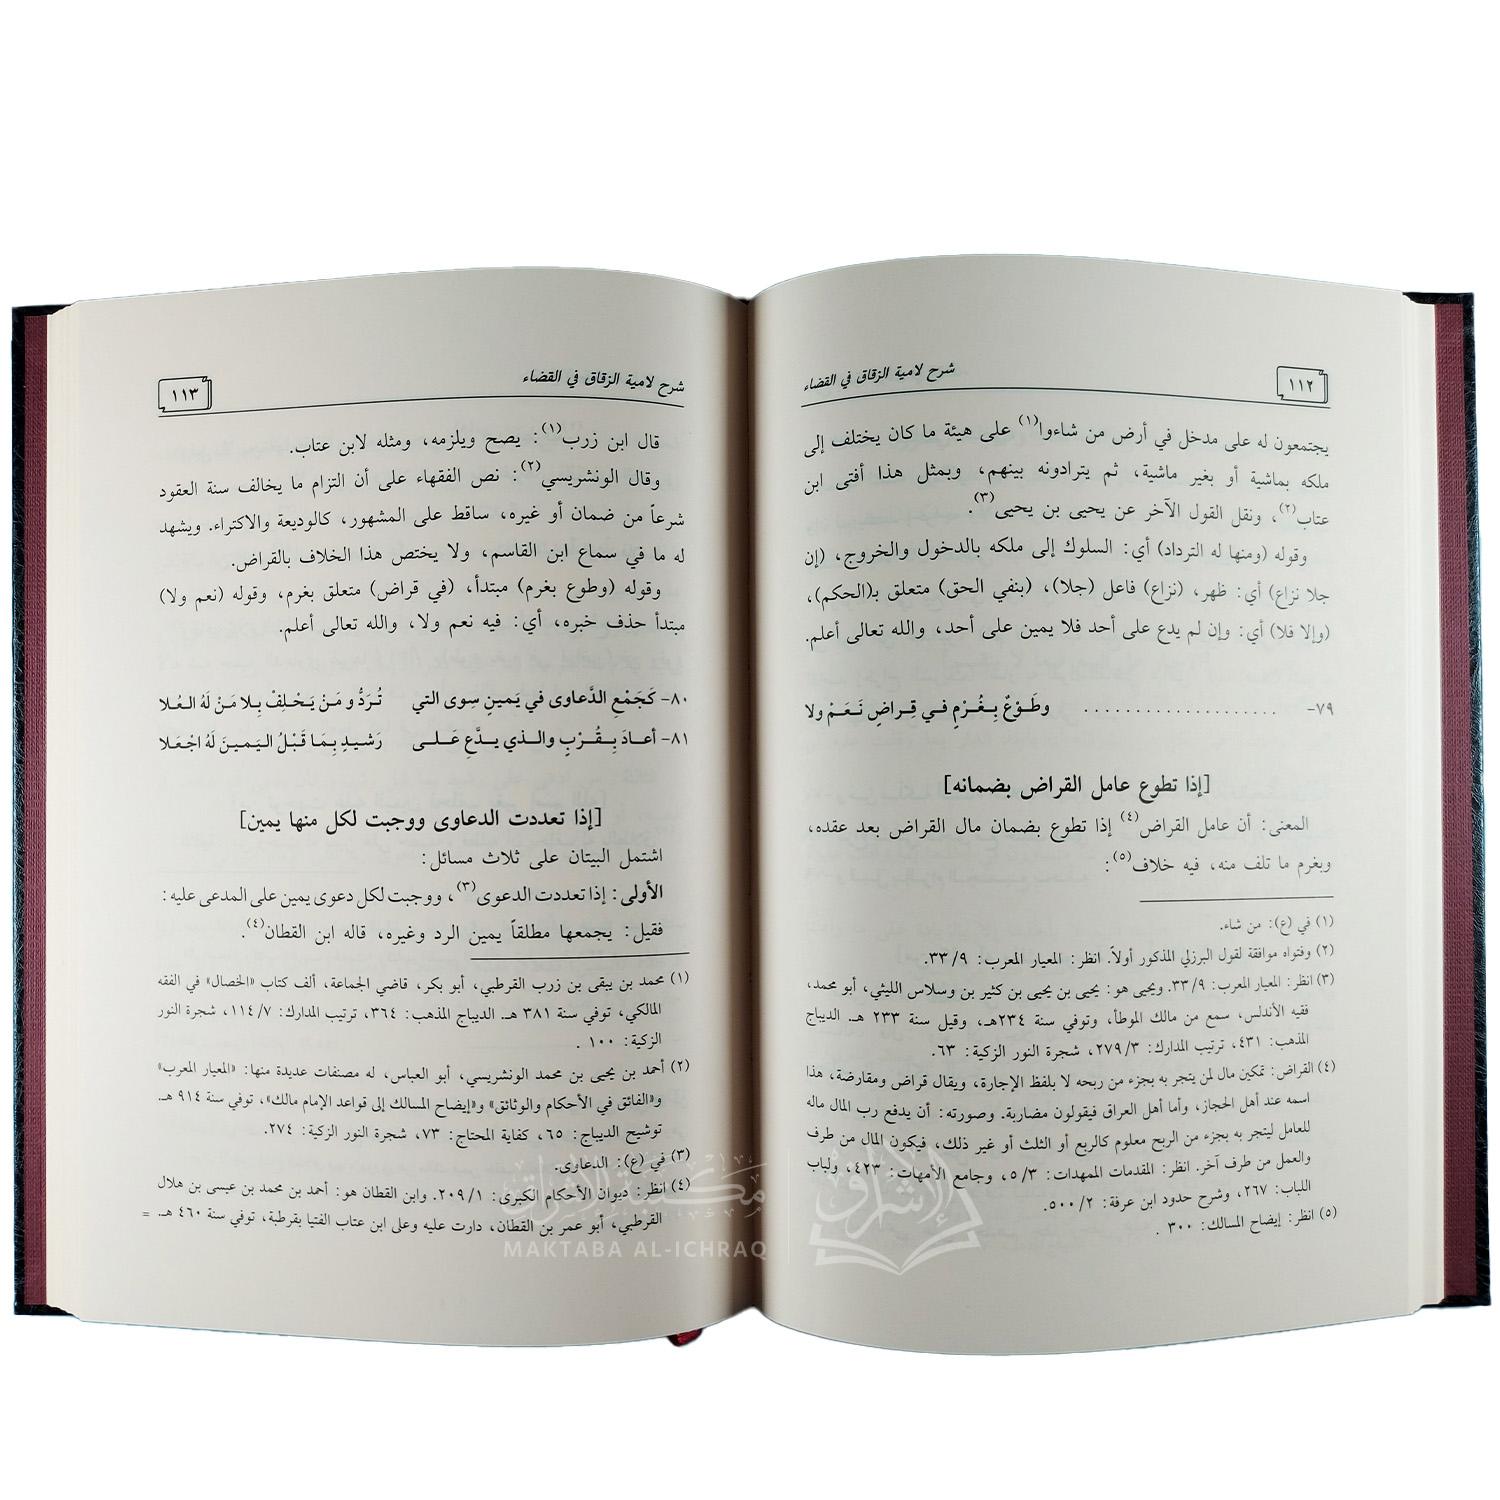 شرح لامية الزقاق في القضاء
١١٢
يجتمعون له على مدخل في أرض من شاءوا(١) على هيئة ما كان يختلف إلى
ملكه بماشية أو بغير ماشية، ثم يترادونه بينهم، وبمثل هذا أفتى ابن
عتاب(٢)، ونقل القول الآخر عن يحيى بن يحيى(٣).
وقوله (ومنها له الترداد) أي: السلوك إلى ملكه بالدخول والخروج، (إن
جلا نزاع) أي: ظهر، (نزاع) فاعل (جلا)، (بنفي الحق) متعلق بـ(الحكم)،
(وإلا فلا) أي: وإن لم يدع على أحد فلا يمين على أحد، والله تعالى أعلم.
٧٩- ..................... وطَوْعٌ بِغُرْمٍ في قِراضٍ نَعَمْ ولا
[إذا تطوع عامل القراض بضمانه]
المعنى: أن عامل القراض(٤) إذا تطوع بضمان مال القراض بعد عقده،
وبغرم ما تلف منه، فيه خلاف(٥):
(١) في (ع): من شاء.
(٢) وفتواه موافقة لقول البرزلي المذكور أولاً. انظر: المعيار المعرب: ٣٣/٩.
(٣) انظر: المعيار المعرب: ٣٣/٩. ويحيى هو: يحيى بن يحيى بن كثير بن وسلاس الليثي، أبو محمد،
فقيه الأندلس، سمع من مالك الموطأ، وتوفي سنة ٢٣٤هـ، وقيل سنة ٢٣٣ هـ. الديباج
المذهب: ٤٣١، ترتيب المدارك: ٢٧٩/٣، شجرة النور الزكية: ٦٣.
(٤) القراض: تمكين مال لمن يتجر به بجزء من ربحه لا بلفظ الإجارة، ويقال قراض ومقارضة، هذا
اسمه عند أهل الحجاز، وأما أهل العراق فيقولون مضاربة. وصورته: أن يدفع رب المال ماله
للعامل ليتجر به بجزء من الربح معلوم كالربع أو الثلث أو غير ذلك، فيكون المال من طرف
والعمل من طرف آخر. انظر: المقدمات الممهدات: ٥/٣، وجامع الأمهات: ٤٢٣، ولباب
اللباب: ٢٦٧، وشرح حدود ابن عرفة: ٥٠٠/٢.
(٥) انظر: إيضاح المسالك: ٣٠٠ .
شرح لامية الزقاق في القضاء
١١٣
قال ابن زرب(١): يصح ويلزمه، ومثله لابن عتاب.
وقال الونشريسي(٢): نص الفقهاء على أن التزام ما يخالف سنة العقود
شرعاً من ضمان أو غيره، ساقط على المشهور، كالوديعة والاكتراء. ويشهد
له ما في سماع ابن القاسم، ولا يختص هذا الخلاف بالقراض.
وقوله (وطوع بغرم) مبتدأ، (في قراض) متعلق بغرم، وقوله (نعم ولا)
مبتدأ حذف خبره، أي: فيه نعم ولا، والله تعالى أعلم.
٨٠- كَجَمْعِ الدَّعاوى في يَمينٍ سِوى التي تُرَدُّ ومَنْ يَحْلِفْ بِلا مَنْ لَهُ العُلا
٨١- أعادَ بِقُرْبٍ والذي يدَّعِ عَلى رَشيدٍ بِمَا قَبْلُ اليَمينَ لَهُ اجْعَلا
[إذا تعددت الدعاوى ووجبت لكل منها يمين]
اشتمل البيتان على ثلاث مسائل:
الأولى: إذا تعددت الدعوى(٣)، ووجبت لكل دعوى يمين على المدعى عليه:
فقيل: يجمعها مطلقاً يمين الرد وغيره، قاله ابن القطان(٤).
(١) محمد بن يبقى بن زرب القرطبي، أبو بكر، قاضي الجماعة، ألف كتاب «الخصال» في الفقه
المالكي، توفي سنة ٣٨١ هـ. الديباج المذهب: ٣٦٤، ترتيب المدارك: ١١٤/٧، شجرة النور
الزكية: ١٠٠ .
(٢) أحمد بن يحيى بن محمد الونشريسي، أبو العباس، له مصنفات عديدة منها: «المعيار المعرب»
و«الفائق في الأحكام والوثائق» و«إيضاح المسالك إلى قواعد الإمام مالك»، توفي سنة ٩١٤ هـ.
توشيح الديباج: ٦٥، كفاية المحتاج: ٧٣، شجرة النور الزكية: ٢٧٤.
(٣) في (ع): الدعاوى.
(٤) انظر: ديوان الأحكام الكبرى: ٢٠٩/١. وابن القطان هو: أحمد بن محمد بن عيسى بن هلال
القرطبي، أبو عمر بن القطان، دارت عليه وعلى ابن عتاب الفتيا بقرطبة، توفي سنة ٤٦٠ هـ. =
مكتبة الإشراق
MAKTABA AL-ICHRAQ
الإشراق